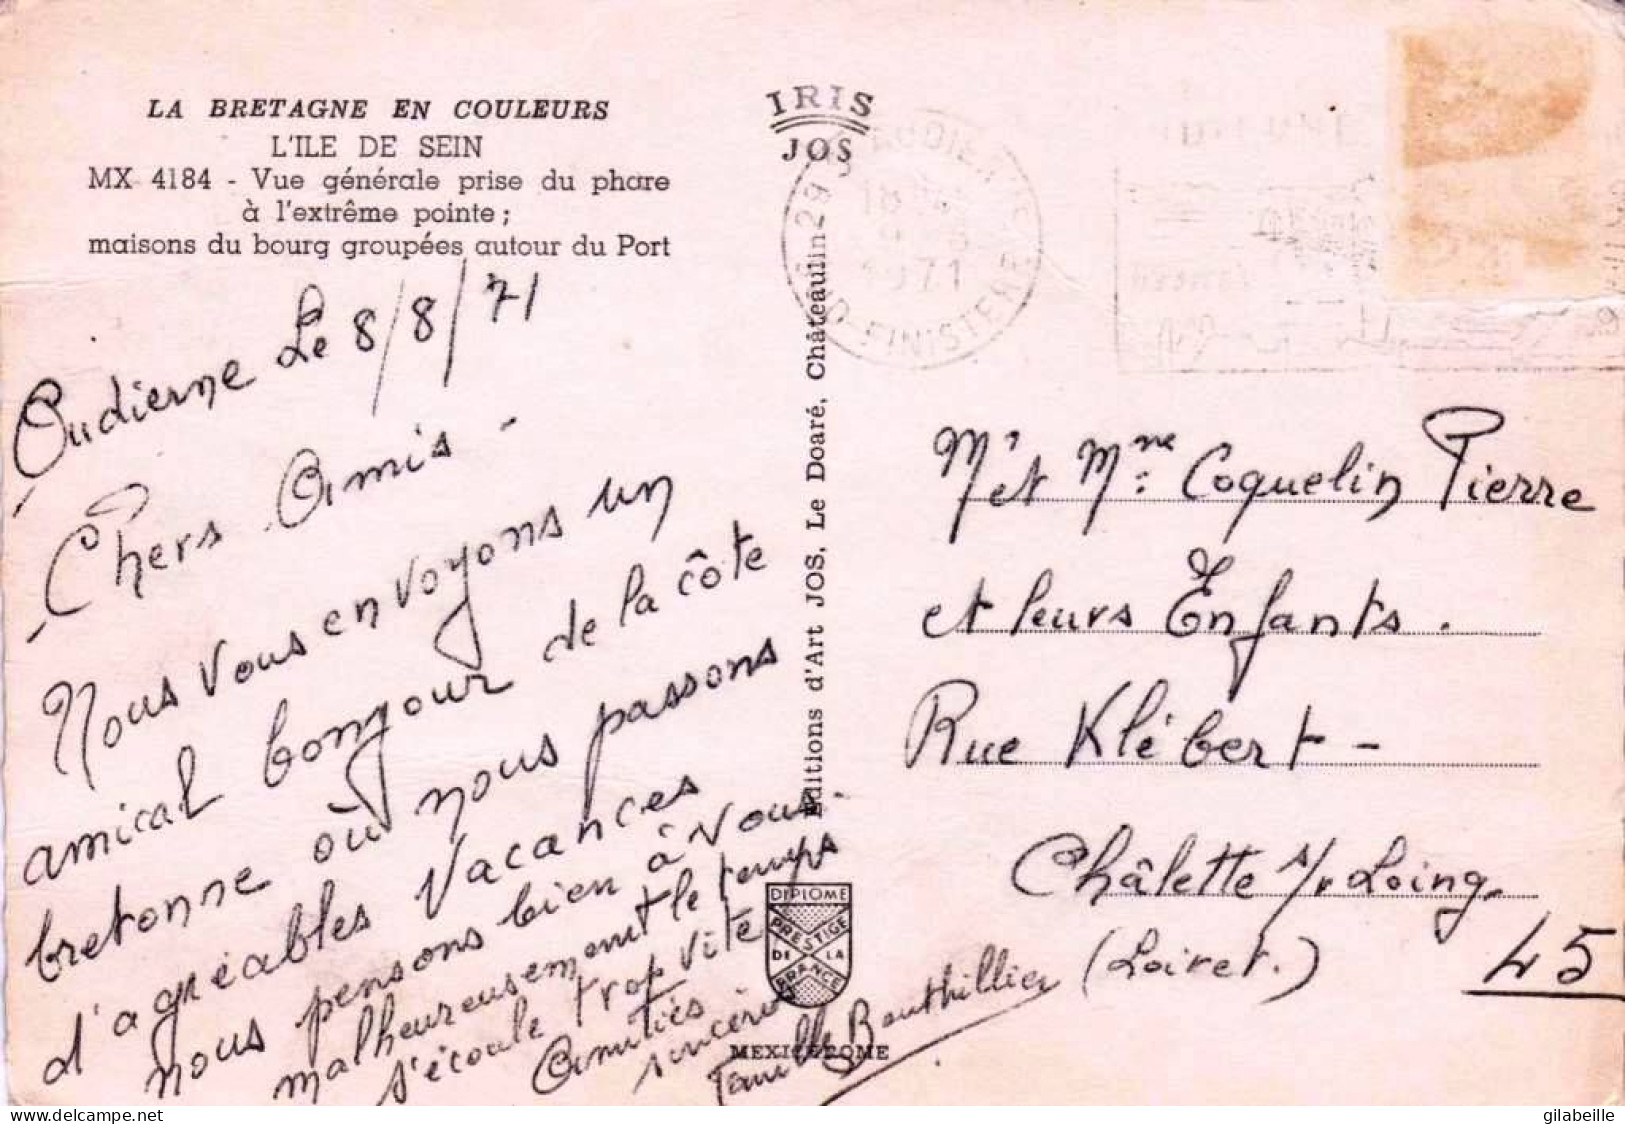 LA BRETAGNE EN COULEURS
L'ILE DE SEIN
MX 4184 - Vue générale prise du phare
à l'extrême pointe ;
maisons du bourg groupées autour du Port
IRIS
JOS
29 AUDIERNE
18
9 - 8
1971
FINISTERE
Audierne Le 8/8/71
Chers Amis -
Nous vous envoyons un
amical bonjour de la côte
bretonne où nous passons
d'agréables vacances
nous pensons bien à vous -
malheureusement le temps
s'écoule trop vite
Amitiés
sincères
Famille Bouthillier
Editions d'Art JOS, Le Doaré, Châteaulin
DIPLOME
PRESTIGE
DE LA
FRANCE
MEXICHROME
Mr et Mme : Coquelin Pierre
et leurs Enfants .
Rue Klébert -
Châlette s/r Loing.
(Loiret.) 45
gilabeille